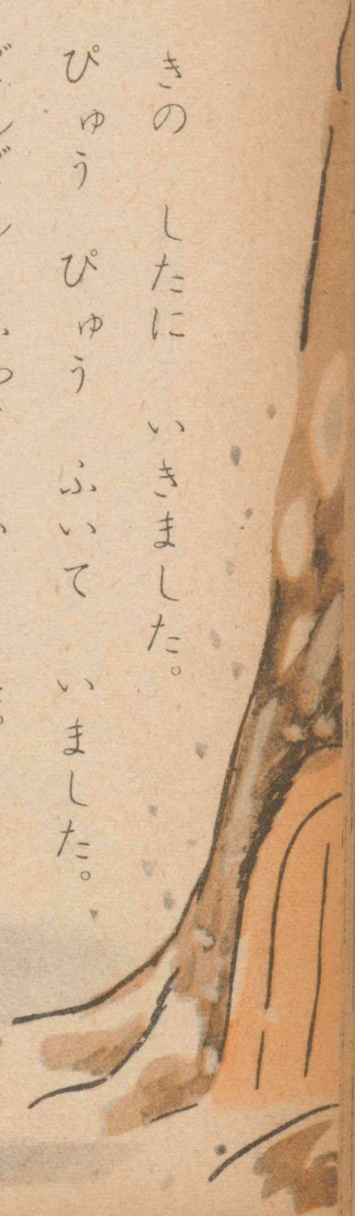 きの　したに　いきました。
ぴゅう　ぴゅう　ふいて　いました。